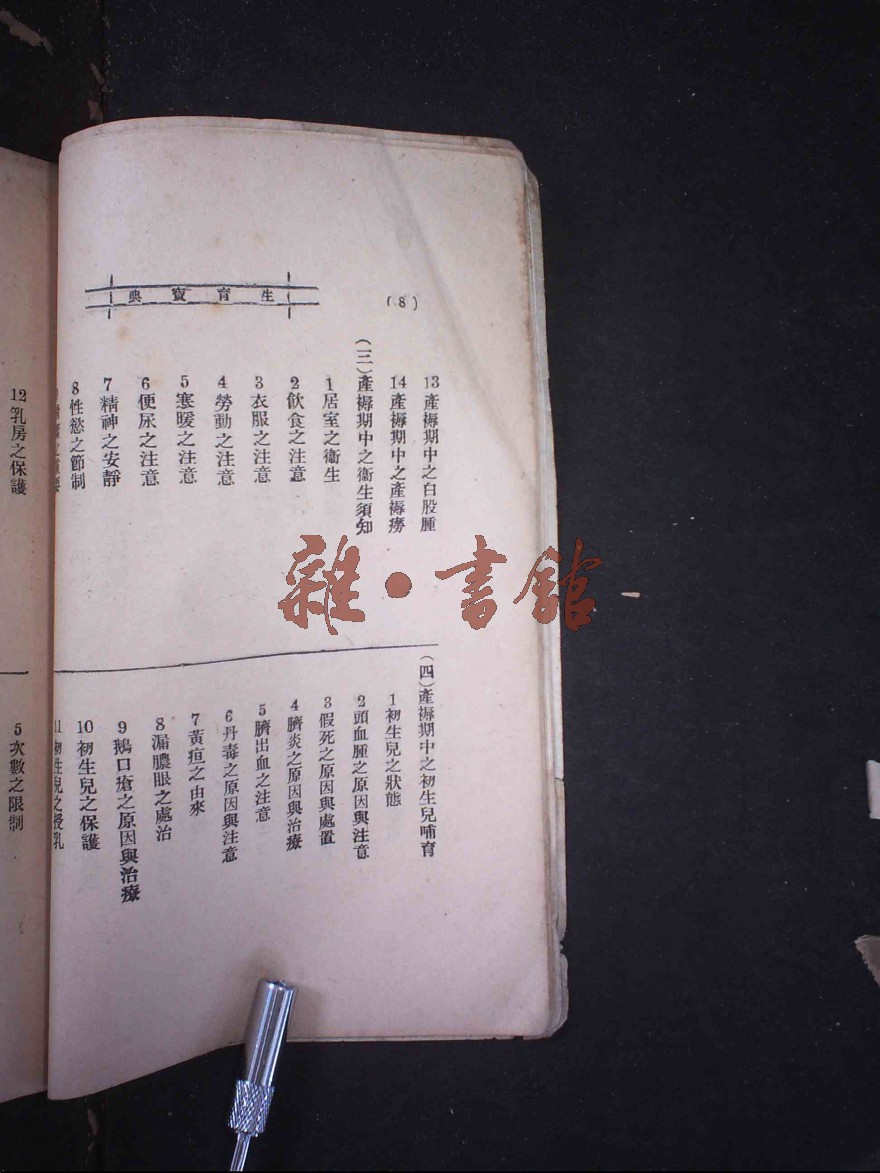 生育寶典
(8)
13 產褥期中之白股腫
14 產褥期中之產褥癆
(三)產褥期中之衞生須知
1 居室之衞生
2 飲食之注意
3 衣服之注意
4 勞動之注意
5 寒暖之注意
6 便尿之注意
7 精神之安靜
8 性慾之節制
(四)產褥期中之初生兒哺育
1 初生兒之狀態
2 頭血腫之原因與注意
3 假死之原因與處置
4 臍炎之原因與治療
5 臍出血之注意
6 丹毒之原因與注意
7 黃疸之由來
8 漏膿眼之處治
9 鵝口瘡之原因與治療
10 初生兒之保護
11 初生兒之授乳
12 乳房之保護
5 次數之限制
雜·書館